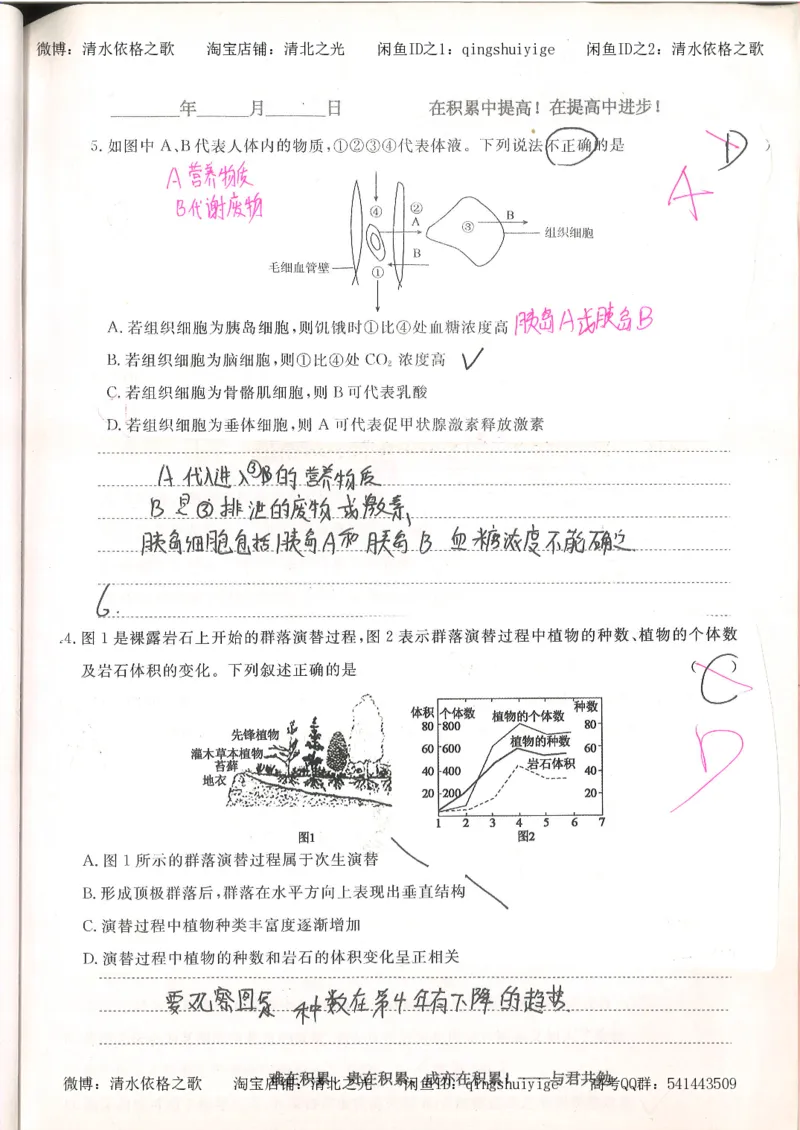 微博：清水依格之歌 淘宝店铺：清北之光 闲鱼ID之1：qingshuiyige 闲鱼ID之2：清水依格之歌
年 月 日 在积累中提高！在提高中进步！
5. 如图中 A、B代表人体内的物质，①②③④代表体液。下列说法不正确的是 D
A
A营养物质
B代谢废物
④ ② A ③ B 组织细胞
B
毛细血管壁 ①
A. 若组织细胞为胰岛细胞，则饥饿时①比④处血糖浓度高 胰岛A或胰岛B
B. 若组织细胞为脑细胞，则①比④处 CO₂ 浓度高 √
C. 若组织细胞为骨骼肌细胞，则 B可代表乳酸
D. 若组织细胞为垂体细胞，则 A 可代表促甲状腺激素释放激素
A 代入进入③的营养物质
B 是③排泄的废物或激素
胰岛细胞包括胰岛A和胰岛B 血糖浓度不能确定
6.
4. 图 1 是裸露岩石上开始的群落演替过程，图 2 表示群落演替过程中植物的种数、植物的个体数
及岩石体积的变化。下列叙述正确的是
（C）
D
先锋植物
灌木草本植物
苔藓
地衣
图1
体积 个体数 植物的个体数 种数
80 800 80
植物的种数
60 600 60
岩石体积
40 400 40
20 200 20
1 2 3 4 5 6 7
图2
A. 图 1 所示的群落演替过程属于次生演替
B. 形成顶极群落后，群落在水平方向上表现出垂直结构
C. 演替过程中植物种类丰富度逐渐增加
D. 演替过程中植物的种数和岩石的体积变化呈正相关
要观察图象 种数在第4年有下降的趋势
难在积累，贵在积累，成亦在积累！——与君共勉
微博：清水依格之歌 淘宝店铺：清北之光 闲鱼ID：qingshuiyige 高考QQ群：541443509